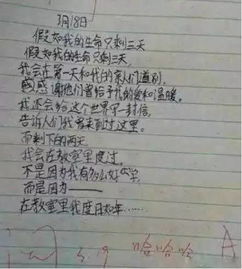 3月18日
假如我的生命只剩三天
假如我的生命只剩三天,
我会在第一天和我的亲人们道别,
感谢他们曾给予我的爱和温暖。
我还会给这个世界写一封信,
告诉人们我曾来到过这里。
而剩下的两天
我会在教室里度过,
不是因为我有多么好学,
而是因为——
在教室里我度日如年……
3.19 哈哈哈 A